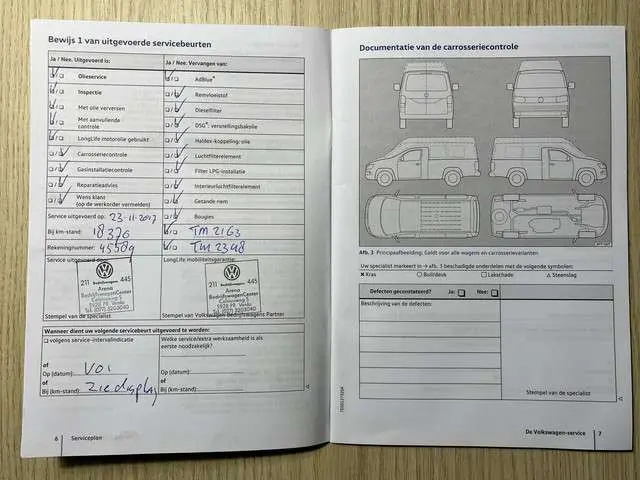 Bewijs 1 van uitgevoerde servicebeurten
Ja / Nee. Uitgevoerd is:
Olieservice
Inspectie
Met olie verversen
Met aanvullende
controle
LongLife motorolie gebruikt
Carrosseriecontrole
Gasinstallatiecontrole
Reparatieadvies
Wens klant
(op de werkorder vermelden)
Ja / Nee. Vervangen van:
AdBlue®
Remvloeistof
Dieselfilter
DSG®: versnellingsbakolie
Haldex-koppeling: olie
Luchtfilterelement
Filter LPG-installatie
Interieurluchtfilterelement
Getande riem
Bougies
TM 2163
TM 2348
Service uitgevoerd op: 23-11-2017
Bij km-stand: 18376
Rekeningnummer: 45589
Service uitgevoerd door:
211 445
Arena
BedrijfswagenCenter
5928 PR Venlo
Stempel van de specialist
LongLife-mobiliteitsgarantie:
211 445
Arena
BedrijfswagenCenter
5928 PR Venlo
Stempel van Volkswagen Bedrijfswagens Partner
Wanneer dient uw volgende servicebeurt uitgevoerd te worden:
volgens service-intervalindicatie
of
Op (datum): VOI
of
Bij (km-stand): Zie display
Welke service/extra werkzaamheid is als
eerste noodzakelijk?
6 Serviceplan
Documentatie van de carrosseriecontrole
Afb. 3 Principeafbeelding: Geldt voor alle wagens en carrosserievarianten
Uw specialist markeert in → afb. 3 beschadigde onderdelen met de volgende symbolen:
Kras Buil/deuk Lakschade Steenslag
Defecten geconstateerd? Ja: Nee:
Beschrijving van de defecten:
Stempel van de specialist
De Volkswagen-service 7